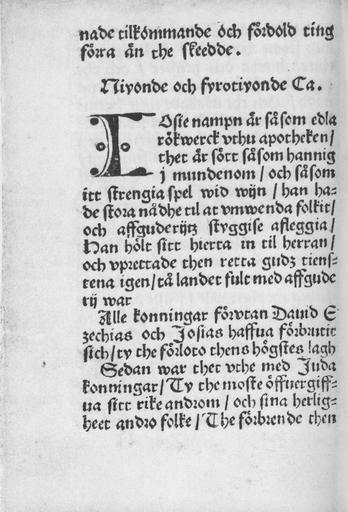 nade tilkömmande och fördold ting
förra än the skeedde.
Niyonde och fyrotiyonde Ca.
IOsie nampn är såsom edla
rökwerck vthu apotheken/
thet är sött såsom hannig
j mundenom / och såsom
itt strengia spel wid wijn / han ha-
de stora nådhe til at vmwenda folkit/
och affguderijtz styggise afleggia /
Han hölt sitt hierta in til herran/
och vprettade then retta gudz tiens-
tena igen/tå landet fult med affgude
rij war
Alle konningar förvtan Dauid E
zechias och Josias haffua förbrutit
sich/ty the förloto thens högstes lagh
Sedan war thet vthe med Juda
konningar/ Ty the moste öffuergiff-
ua sitt rike androm / och sina herlig-
heet andro folke / The förbrende then